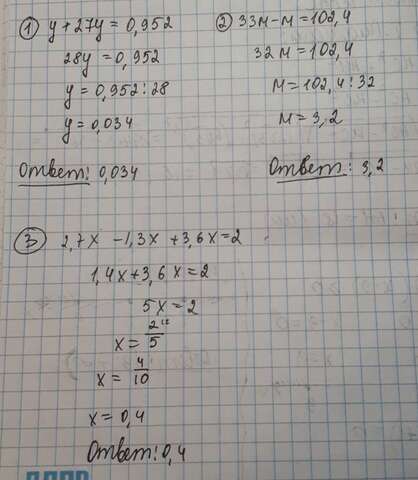 ① y + 27y = 0,952
28y = 0,952
y = 0,952 : 28
y = 0,034
Ответ: 0,034
② 33м - м = 102,4
32м = 102,4
м = 102,4 : 32
м = 3,2
Ответ: 3,2
③ 2,7x - 1,3x + 3,6x = 2
1,4x + 3,6x = 2
5x = 2
x = 2/5
x = 4/10
x = 0,4
Ответ: 0,4